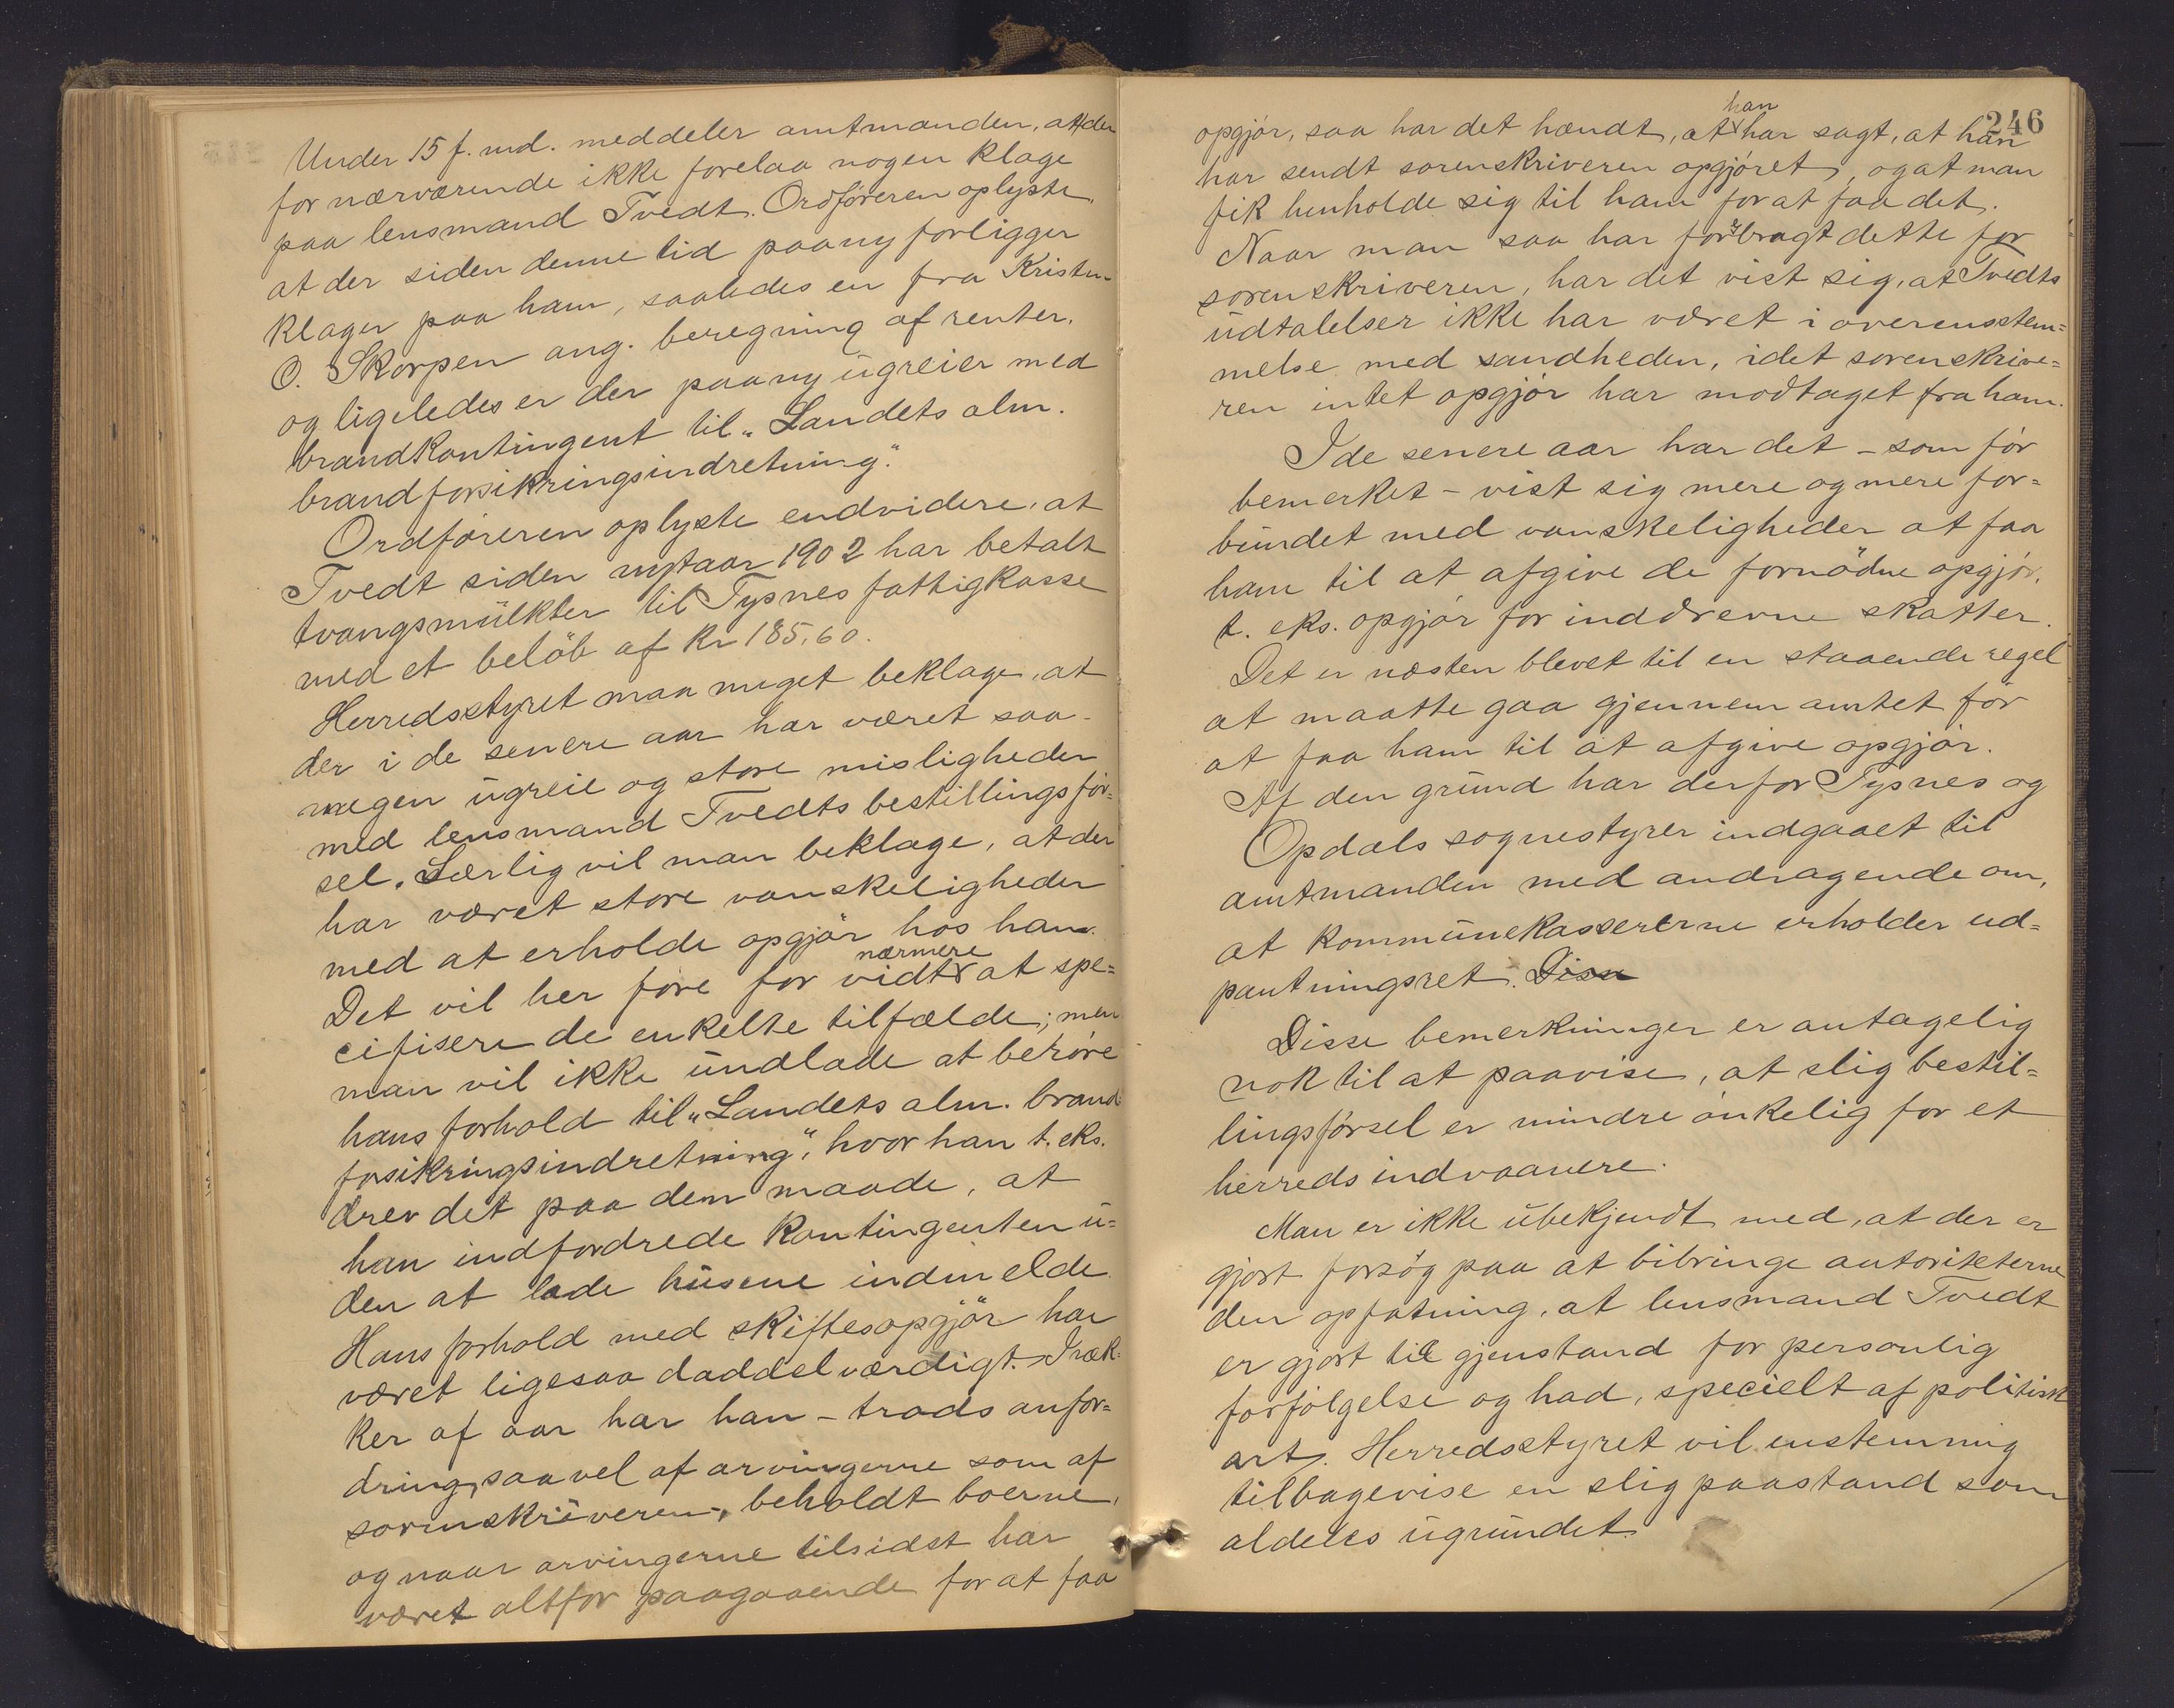 Under 15 f. md. meddeler amtmanden, at der
for nærværende ikke forelaa nogen klage
paa lensmand Tvedt. Ordføreren oplyste,
at der siden denne tid paany forligger
klager paa ham, saaledes en fra Kristen
O. Skorpen ang. beregning af renter,
og ligeledes er der paany ugreier med
brandkontingent til „Landets alm.
brandforsikringsindretning".
Ordføreren oplyste endvidere, at
Tvedt siden nytaar 1902 har betalt
tvangsmulkter til Tysnes fattigkasse
med et beløb af kr 185,60.
Herredsstyret maa meget beklage, at
der i de senere aar har været saa
megen ugreie og store misligheder
med lensmand Tvedts bestillingsfør=
sel. Særlig vil man beklage, at der
har været store vanskeligheder
med at erholde opgjør hos ham.
nærmere
Det vil her føre for vidt at spe=
cifisere de enkelte tilfælde; men
man vil ikke undlade at berøre
hans forhold til „Landets alm. brand
forsikringsindretning", hvor han t. eks.
drev det paa den maade, at
han indfordrede kontingenten u=
den at lade husene indmelde.
Hans forhold med skiftesopgjør har
været ligesaa daddelværdigt. I ræk=
ker af aar har han – trods anfor=
dring, saavel af arvingerne som af
sorenskriveren –, beholdt boerne,
og naar arvingerne tilsidst har
været altfor paagaaende for at faa
246
han
opgjør, saa har det hændt, at har sagt, at han
har sendt sorenskriveren opgjøret, og at man
fik henholde sig til ham for at faa det.
Naar man saa har forebragt dette for
sorenskriveren, har det vist sig, at Tvedts
udtalelser ikke har været i overensstem=
melse med sandheden, idet sorenskrive=
ren intet opgjør har modtaget fra ham.
I de senere aar har det – som før
bemerket – vist sig mere og mere for=
bundet med vanskeligheder at faa
ham til at afgive de fornødne opgjør,
t. eks. opgjør for inddrevne skatter.
Det er næsten blevet til en staaende regel
at maatte gaa gjennem amtet før
at faa ham til at afgive opgjør.
Af den grund har derfor Tysnes og
Opdals sognestyrer indgaaet til
amtmanden med andragende om,
at kommunekassererne erholder ud=
pantningsret. Disse
Disse bemerkninger er antagelig
nok til at paavise, at slig bestil=
lingsførsel er mindre ønkelig for et
herreds indvaanere.
Man er ikke ubekjendt med, at der er
gjort forsøg paa at bibringe autoriteterne
den opfatning, at lensmand Tvedt
er gjort til gjenstand for personlig
forfølgelse og had, specielt af politisk
art. Herredsstyret vil enstemmig
tilbagevise en slig paastand som
aldeles ugrundet.